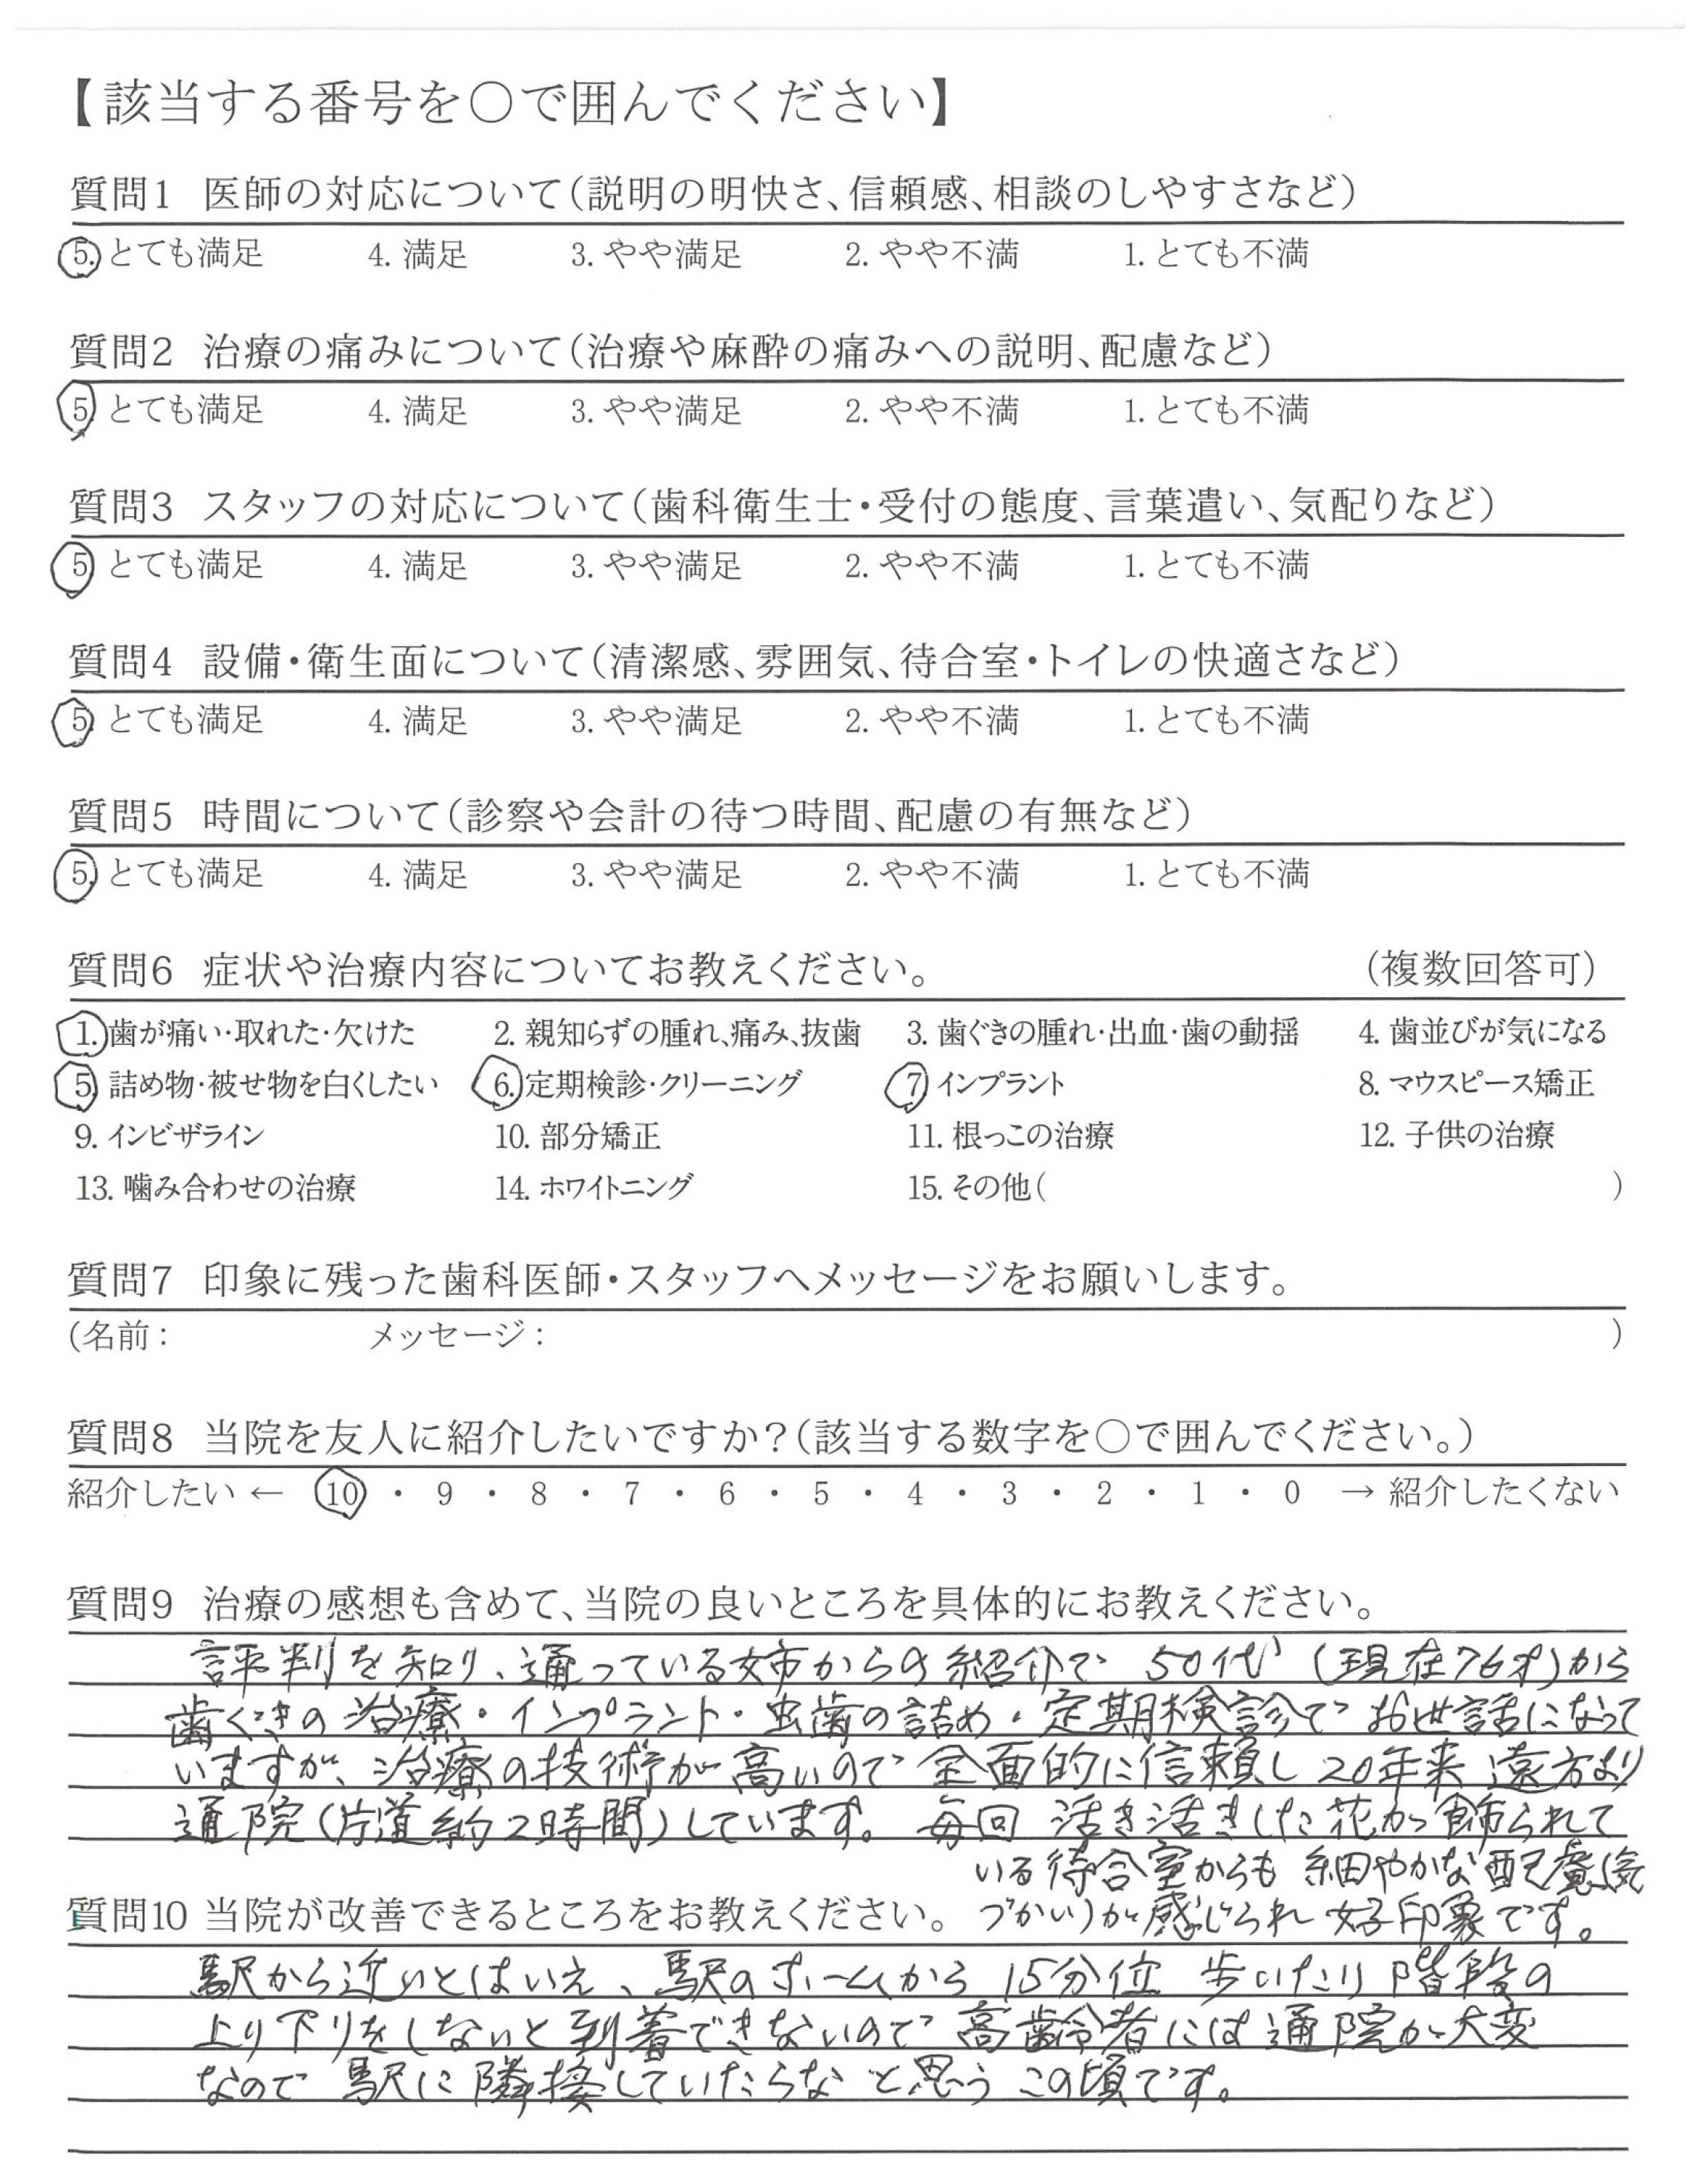 【該当する番号を〇で囲んでください】
質問1 医師の対応について(説明の明快さ、信頼感、相談のしやすさなど)
5. とても満足 4. 満足 3. やや満足 2. やや不満 1. とても不満
質問2 治療の痛みについて(治療や麻酔の痛みへの説明、配慮など)
5. とても満足 4. 満足 3. やや満足 2. やや不満 1. とても不満
質問3 スタッフの対応について(歯科衛生士・受付の態度、言葉遣い、気配りなど)
5. とても満足 4. 満足 3. やや満足 2. やや不満 1. とても不満
質問4 設備・衛生面について(清潔感、雰囲気、待合室・トイレの快適さなど)
5. とても満足 4. 満足 3. やや満足 2. やや不満 1. とても不満
質問5 時間について(診察や会計の待つ時間、配慮の有無など)
5. とても満足 4. 満足 3. やや満足 2. やや不満 1. とても不満
質問6 症状や治療内容についてお教えください。 (複数回答可)
1. 歯が痛い・取れた・欠けた 2. 親知らずの腫れ、痛み、抜歯 3. 歯ぐきの腫れ・出血・歯の動揺 4. 歯並びが気になる
5. 詰め物・被せ物を白くしたい 6. 定期検診・クリーニング 7. インプラント 8. マウスピース矯正
9. インビザライン 10. 部分矯正 11. 根っこの治療 12. 子供の治療
13. 噛み合わせの治療 14. ホワイトニング 15. その他( )
質問7 印象に残った歯科医師・スタッフへメッセージをお願いします。
(名前: メッセージ: )
質問8 当院を友人に紹介したいですか?(該当する数字を〇で囲んでください。)
紹介したい ← 10 ・ 9 ・ 8 ・ 7 ・ 6 ・ 5 ・ 4 ・ 3 ・ 2 ・ 1 ・ 0 → 紹介したくない
質問9 治療の感想も含めて、当院の良いところを具体的にお教えください。
評判を知り、通っている姉からの紹介で 50代 (現在76才)から
歯ぐきの治療・インプラント・虫歯の詰め・定期検診でお世話になって
いますが、治療の技術が高いので全面的に信頼し20年来遠方より
通院(片道約2時間)しています。毎回 活き活きした花が飾られて
いる待合室からも細やかな配慮(気
づかい)が感じられ好印象です。
質問10 当院が改善できるところをお教えください。
駅から近いとはいえ、駅のホームから15分位 歩いたり階段の
上り下りをしないと到着できないので高齢者には通院が大変
なので駅に隣接していたらなと思うこの頃です。